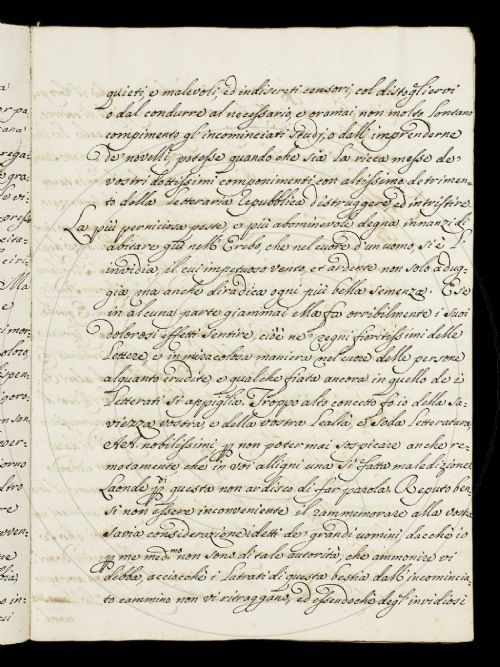 quieti, e malevoli, ed indiscreti censori, col distoglier vi
o dal condurre al necessario, e oramai non molto lontano
compimento gl' incominciati studj, o dall' imprenderne
de' novelli, potesse quando che sia la ricca messe de'
vostri dottissimi componimenti con altissimo detrimen-
to della letteraria Repubblica distruggere, ed intristire
La più perniciosa peste, e più abominevole degna innanzi di
abitare giù nell' Erebo, che nel cuore d'un uomo, si è l'
invidia, il cui impetuoso vento, et ardente non solo adug-
gia ma anche diradica ogni più bella semenza. E se
in alcuna parte giammai Ella fa orribilmente i suoi
dolorosi effetti sentire, ciò è ne' regni fioritissimi delle
Lettere, e in miracolosa maniera nel cuore delle persone
alquanto erudite, e qualche fiata ancora in quello de' i
Letterati si appiglia. Troppo alto concetto fo io della Sa-
viezza vostra, e della vostra Lealtà, e Soda Letteratura,
AA. nobilissimi, per non poter mai sospicare anche re-
motamente, che in voi alligni una sì fatta maledizione.
Laonde per questo non ardisco di far parola. Reputo ben-
sì non essere inconveniente il rammemorare alla vostra
savia considerazione i detti de' grandi uomini, dacchè io
per me med.mo non sono di tale autorità, che ammonire vi
debba, acciocchè i latrati di questa bestia dall' incomincia-
to cammino non vi ritraggano, ed essendochè degl' invidiosi